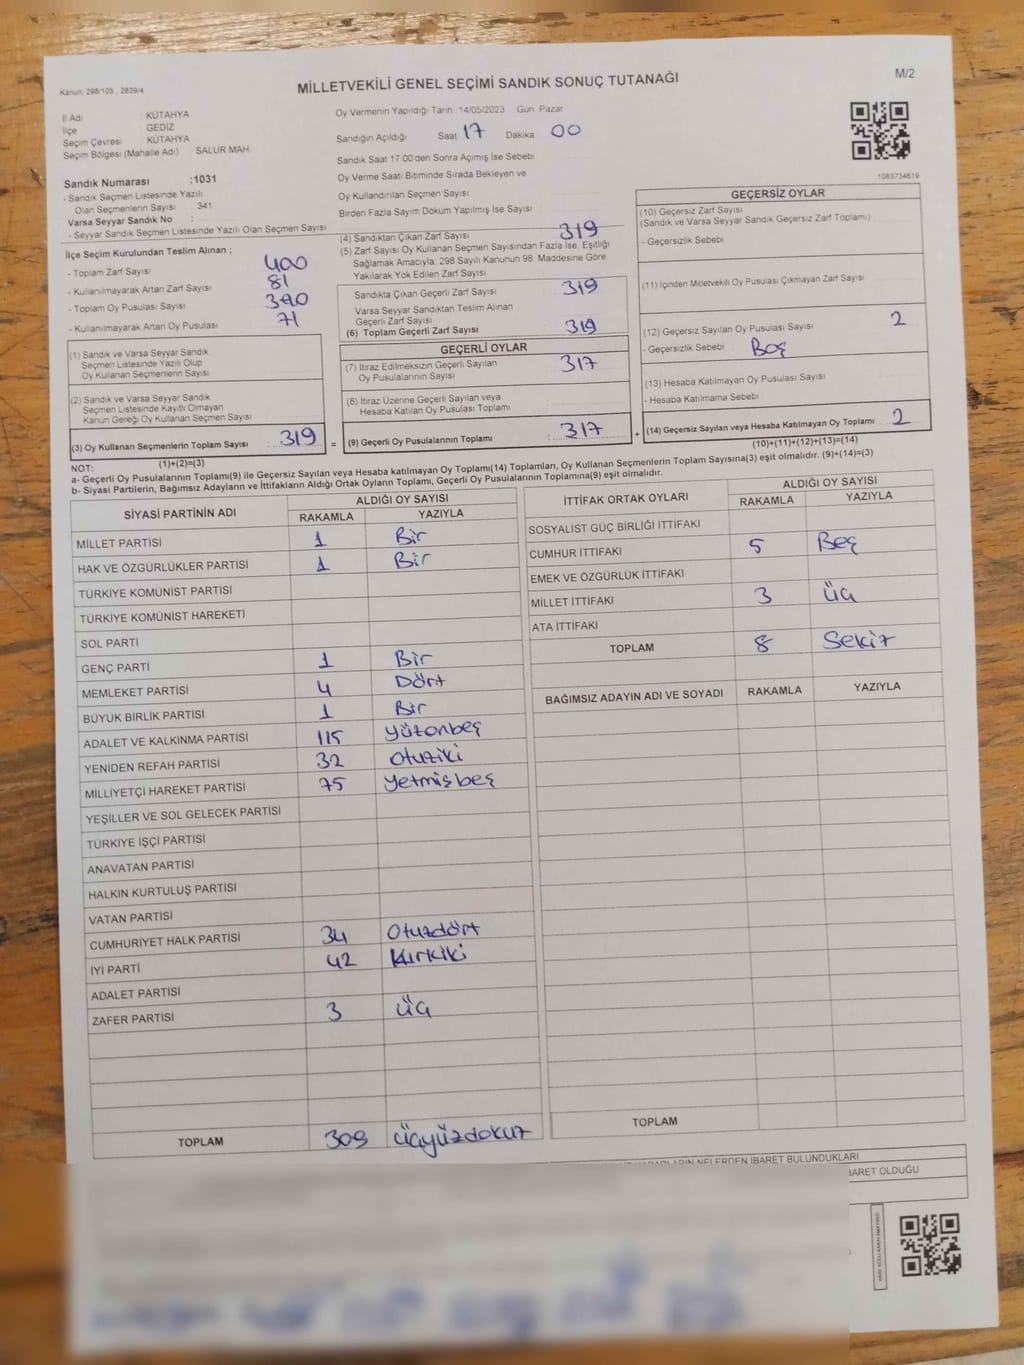 Kanun: 298/105 2839/4
MİLLETVEKİLİ GENEL SEÇİMİ SANDIK SONUÇ TUTANAĞI
M/2
İl Adı KÜTAHYA
İlçe GEDİZ
Seçim Çevresi KÜTAHYA
Seçim Bölgesi (Mahalle Adı) SALUR MAH
Oy Vermenin Yapıldığı Tarih 14/05/2023 Gün Pazar
Sandığın Açıldığı Saat 17 Dakika 00
Sandık Saat 17:00'den Sonra Açımış İse Sebebi
Oy Verme Saati Bitiminde Sırada Bekleyen ve
Oy Kullandırılan Seçmen Sayısı
Birden Fazla Sayım Döküm Yapılmış İse Sayısı
1083734619
Sandık Numarası :1031
- Sandık Seçmen Listesinde Yazılı
Olan Seçmenlerin Sayısı 341
Varsa Seyyar Sandık No :
- Seyyar Sandık Seçmen Listesinde Yazılı Olan Seçmen Sayısı
İlçe Seçim Kurulundan Teslim Alınan ;
- Toplam Zarf Sayısı 400
- Kullanılmayarak Artan Zarf Sayısı 81
- Toplam Oy Pusulası Sayısı 390
- Kullanılmayarak Artan Oy Pusulası 71
(1) Sandık ve Varsa Seyyar Sandık
Seçmen Listesinde Yazılı Olup
Oy Kullanan Seçmenlerin Sayısı
(2) Sandık ve Varsa Seyyar Sandık
Seçmen Listesinde Kayıtlı Olmayan
Kanun Gereği Oy Kullanan Seçmen Sayısı
(3) Oy Kullanan Seçmenlerin Toplam Sayısı : 319 =
(1)+(2)=(3)
(4) Sandıktan Çıkan Zarf Sayısı 319
(5) Zarf Sayısı Oy Kullanan Seçmen Sayısından Fazla İse, Eşitliği
Sağlamak Amacıyla, 298 Sayılı Kanunun 98. Maddesine Göre
Yakılarak Yok Edilen Zarf Sayısı
Sandıkta Çıkan Geçerli Zarf Sayısı 319
Varsa Seyyar Sandıktan Teslim Alınan
Geçerli Zarf Sayısı
(6) Toplam Geçerli Zarf Sayısı 319
GEÇERLİ OYLAR
(7) İtiraz Edilmeksizin Geçerli Sayılan
Oy Pusulalarının Sayısı 317
(8) İtiraz Üzerine Geçerli Sayılan veya
Hesaba Katılan Oy Pusulası Toplamı
(9) Geçerli Oy Pusulalarının Toplamı : 317 +
GEÇERSİZ OYLAR
(10) Geçersiz Zarf Sayısı
(Sandık ve Varsa Seyyar Sandık Geçersiz Zarf Toplamı)
- Geçersizlik Sebebi
(11) İçinden Miletvekili Oy Pusulası Çıkmayan Zarf Sayısı
(12) Geçersiz Sayılan Oy Pusulası Sayısı 2
- Geçersizlik Sebebi Boş
(13) Hesaba Katılmayan Oy Pusulası Sayısı
- Hesaba Katılmama Sebebi
(14) Geçersiz Sayılan veya Hesaba Katılmayan Oy Toplamı : 2
(10)+(11)+(12)+(13)=(14)
NOT:
a- Geçerli Oy Pusulalarının Toplamı(9) ile Geçersiz Sayılan veya Hesaba katılmayan Oy Toplamı(14) Toplamları, Oy Kullanan Seçmenlerin Toplam Sayısına(3) eşit olmalıdır. (9)+(14)=(3)
b- Siyasi Partilerin, Bağımsız Adayların ve İttifakların Aldığı Ortak Oyların Toplamı, Geçerli Oy Pusulalarının Toplamına(9) eşit olmalıdır.
SİYASİ PARTİNİN ADI ALDIĞI OY SAYISI
RAKAMLA YAZIYLA
MİLLET PARTİSİ 1 Bir
HAK VE ÖZGÜRLÜKLER PARTİSİ 1 Bir
TÜRKİYE KOMÜNİST PARTİSİ
TÜRKİYE KOMÜNİST HAREKETİ
SOL PARTİ
GENÇ PARTİ 1 Bir
MEMLEKET PARTİSİ 4 Dört
BÜYÜK BİRLİK PARTİSİ 1 Bir
ADALET VE KALKINMA PARTİSİ 115 Yüzonbeş
YENİDEN REFAH PARTİSİ 32 Otuziki
MİLLİYETÇİ HAREKET PARTİSİ 75 Yetmişbeş
YEŞİLLER VE SOL GELECEK PARTİSİ
TÜRKİYE İŞÇİ PARTİSİ
ANAVATAN PARTİSİ
HALKIN KURTULUŞ PARTİSİ
VATAN PARTİSİ
CUMHURİYET HALK PARTİSİ 34 Otuzdört
İYİ PARTİ 42 Kırkiki
ADALET PARTİSİ
ZAFER PARTİSİ 3 Üç
TOPLAM 309 Üçyüzdokuz
İTTİFAK ORTAK OYLARI ALDIĞI OY SAYISI
RAKAMLA YAZIYLA
SOSYALİST GÜÇ BİRLİĞİ İTTİFAKI
CUMHUR İTTİFAKI 5 Beş
EMEK VE ÖZGÜRLÜK İTTİFAKI
MİLLET İTTİFAKI 3 Üç
ATA İTTİFAKI
TOPLAM 8 Sekiz
BAĞIMSIZ ADAYIN ADI VE SOYADI RAKAMLA YAZIYLA
TOPLAM
NELERDEN İBARET BULUNDUKLARI
İBARET OLDUĞU